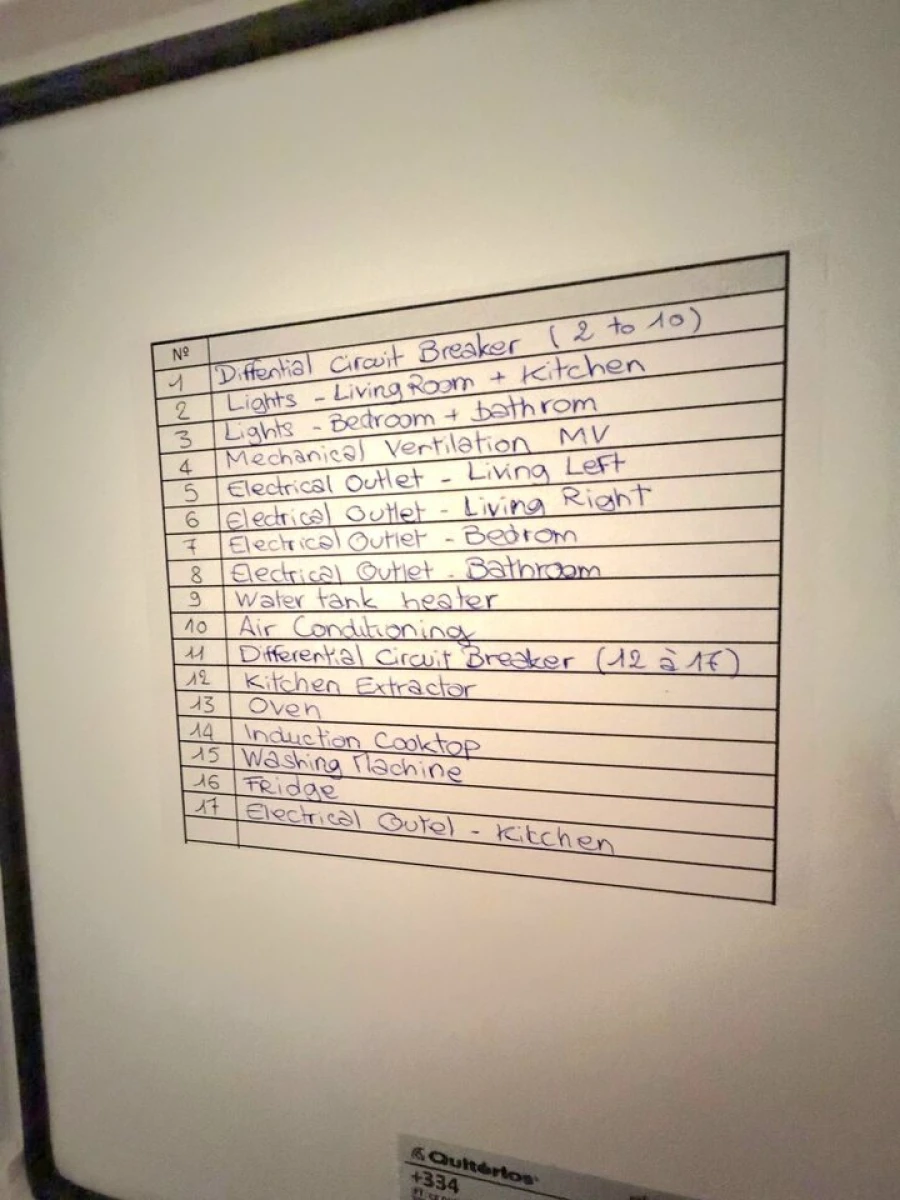 Nº
1 Diffential Circuit Breaker (2 to 10)
2 Lights - Living Room + Kitchen
3 Lights - Bedroom + bathrom
4 Mechanical Ventilation MV
5 Electrical Outlet - Living Left
6 Electrical Outlet - Living Right
7 Electrical Outlet - Bedrom
8 Electrical Outlet - Bathroom
9 Water tank heater
10 Air Conditioning
11 Differential Circuit Breaker (12 à 17)
12 Kitchen Extractor
13 Oven
14 Induction Cooktop
15 Washing Machine
16 Fridge
17 Electrical Outel - Kitchen
Quitérios
+334